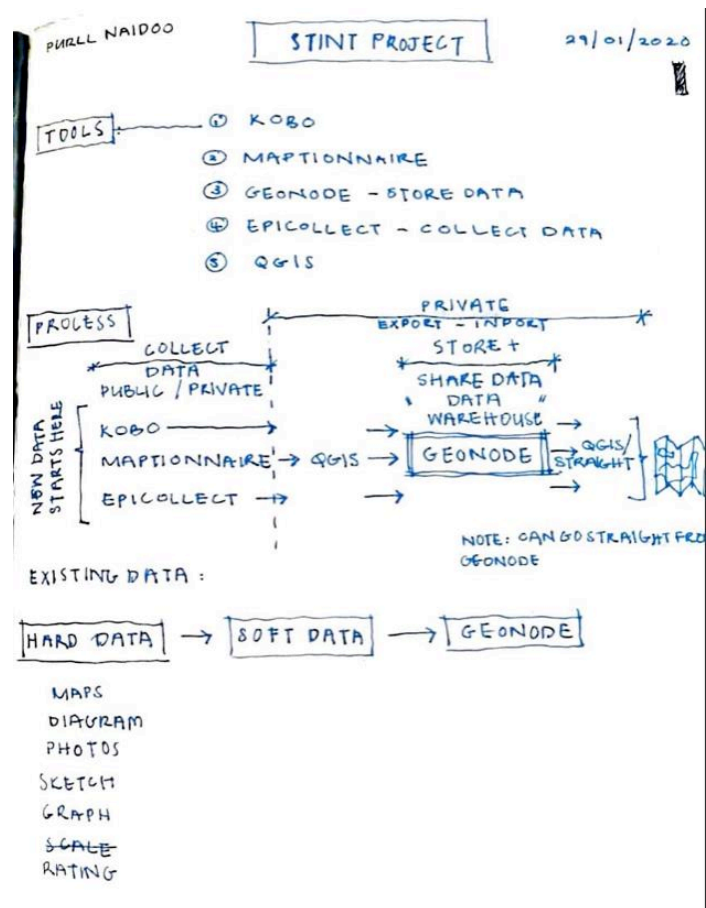 PURLL NAIDOO
STINT PROJECT
29/01/2020
TOOLS
① KOBO
② MAPTIONNAIRE
③ GEONODE - STORE DATA
④ EPICOLLECT - COLLECT DATA
⑤ QGIS
PROCESS
PRIVATE
EXPORT - INPORT
COLLECT
DATA
PUBLIC / PRIVATE
STORE +
SHARE DATA
" DATA "
WAREHOUSE
NEW DATA
STARTS HERE
KOBO → →  →
MAPTIONNAIRE → QGIS → GEONODE → QGIS/
STRAIGHT
EPICOLLECT → → →
NOTE: CAN GO STRAIGHT FRO
GEONODE
EXISTING DATA :
HARD DATA → SOFT DATA → GEONODE
MAPS
DIAGRAM
PHOTOS
SKETCH
GRAPH
SCALE
RATING